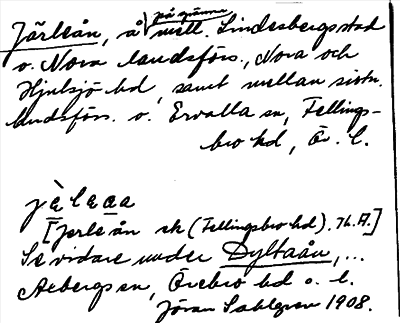 på gränsen
Järleån, å mell. Lindesbergs stad
o. Nora landsförs., Nora och
Hjulsjö hd, samt mellan sistn.
landsförs. o. Ervalla sn, Fellings-
bro hd, Ör. l.
jè̀leaa
[Jerle ån sk (Fellingsbro hd). Th. A.]
Se vidare under Dyltaån, ...
Axbergs sn, Örebro hd o. l.
Jöran Sahlgren 1908.